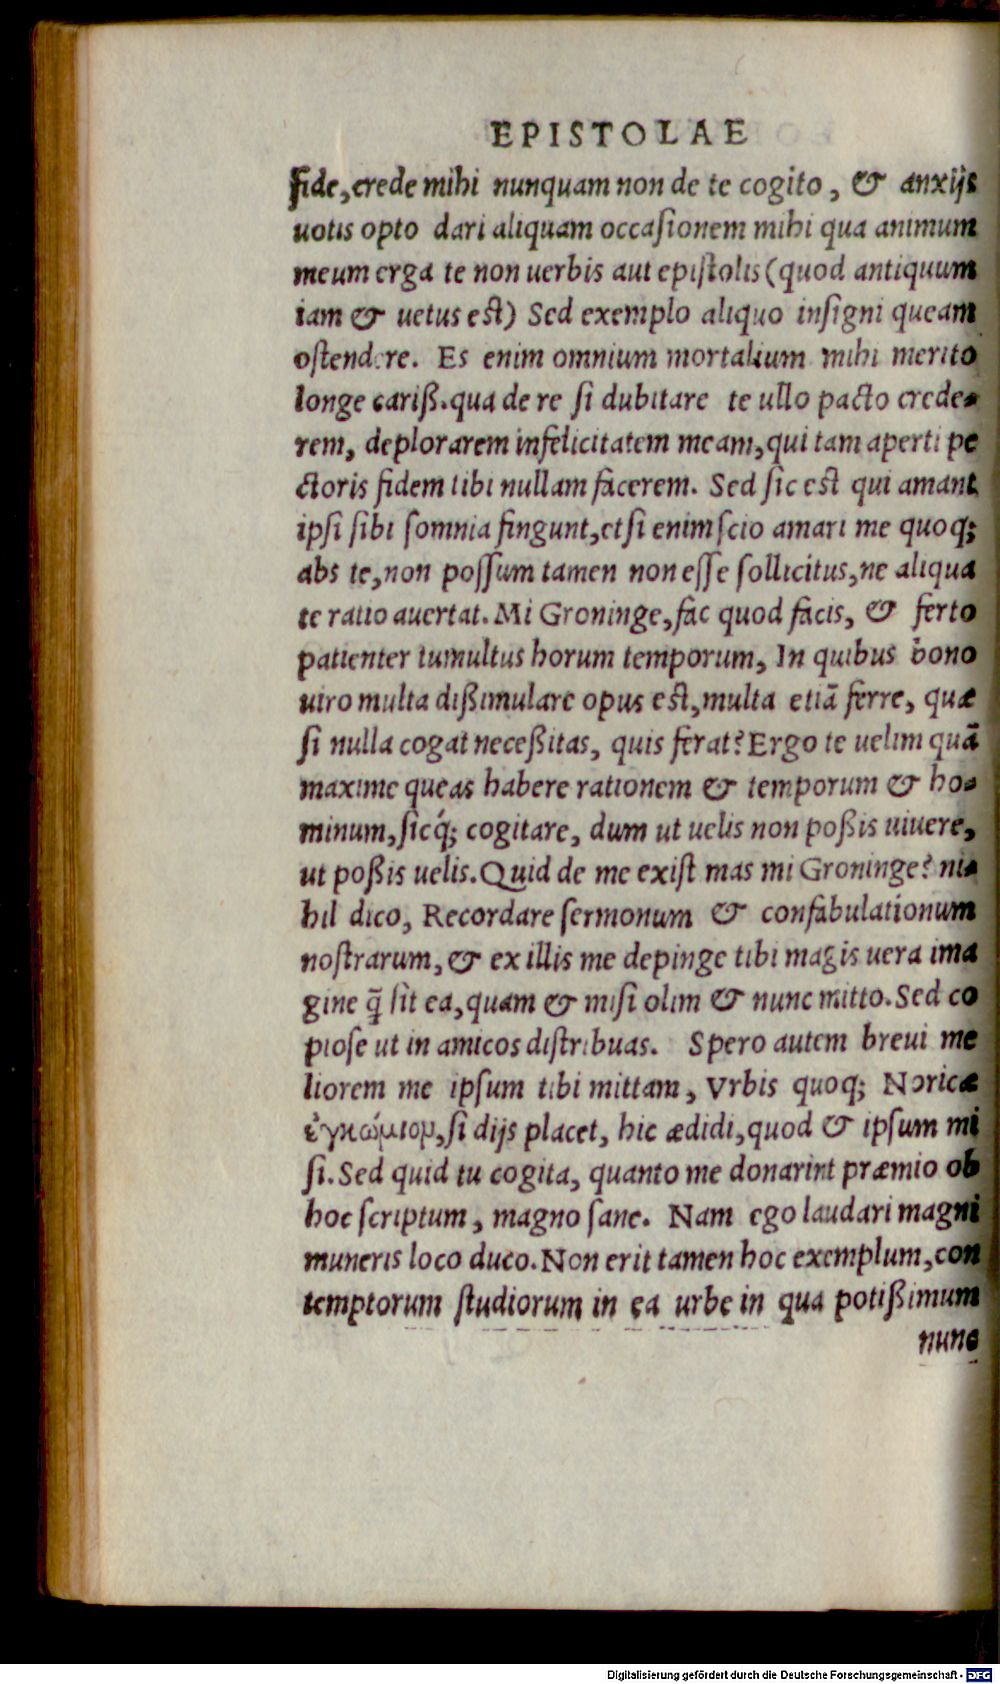 EPISTOLAE
fide, crede mihi nunquam non de te cogito, & anxijs
uotis opto dari aliquam occaſionem mihi qua animum
meum erga te non uerbis aut epiſtolis (quod antiquum
iam & uetus eſt) Sed exemplo aliquo inſigni queam
oſtendere. Es enim omnium mortalium mihi merito
longe cariß. qua de re ſi dubitare te ullo pacto crede-
rem, deplorarem infelicitatem meam, qui tam aperti pe
ctoris fidem tibi nullam facerem. Sed ſic eſt qui amant
ipſi ſibi ſomnia fingunt, etſi enim ſcio amari me quoq;
abs te, non poſſum tamen non eſſe ſollicitus, ne aliqua
te ratio auertat. Mi Groninge, fac quod facis, & ferto
patienter tumultus horum temporum, In quibus bono
uiro multa dißimulare opus eſt, multa etiā ferre, quæ
ſi nulla cogat neceßitas, quis ferat? Ergo te uelim quā
maxime queas habere rationem & temporum & ho-
minum, ſicq́; cogitare, dum ut uelis non poßis uiuere,
ut poßis uelis. Quid de me exiſt mas mi Groninge? ni-
hil dico, Recordare ſermonum & confabulationum
noſtrarum, & ex illis me depinge tibi magis uera ima
gine q̄ ſit ea, quam & miſi olim & nunc mitto. Sed co
pioſe ut in amicos diſtribuas. Spero autem breui me
liorem me ipſum tibi mittam, Vrbis quoq; Noricæ
ἐγκώμιομ, ſi dijs placet, hic ædidi, quod & ipſum mi
ſi. Sed quid tu cogita, quanto me donarint præmio ob
hoc ſcriptum, magno ſane. Nam ego laudari magni
muneris loco duco. Non erit tamen hoc exemplum, con
temptorum ſtudiorum in ea urbe in qua potißimum
nunc
Digitalisierung gefördert durch die Deutsche Forschungsgemeinschaft - DFG